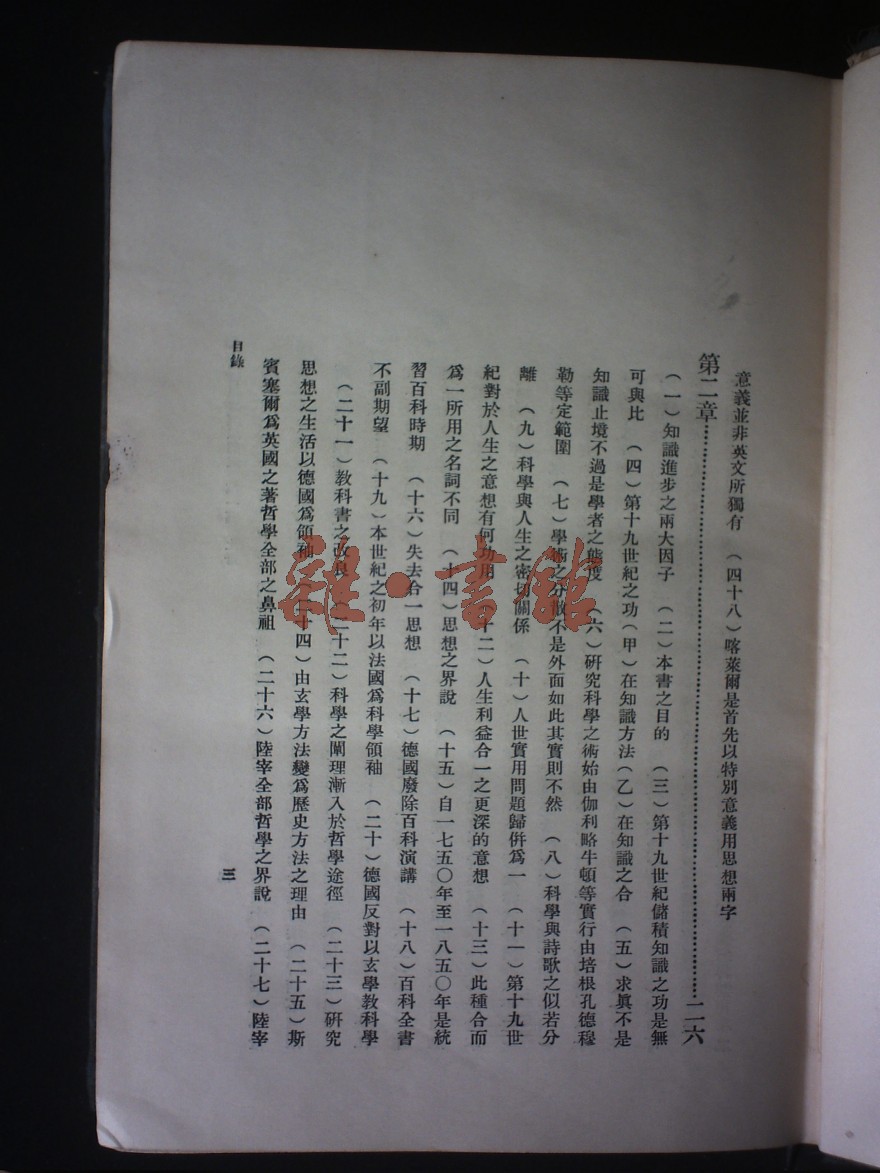 意義並非英文所獨有　(四十八)喀萊爾是首先以特別意義用思想兩字
第二章……二六
(一)知識進步之兩大因子　(二)本書之目的　(三)第十九世紀儲積知識之功是無
可與比　(四)第十九世紀之功(甲)在知識方法(乙)在知識之合　(五)求眞不是
知識止境不過是學者之態度　(六)研究科學之術始由伽利略牛頓等實行由培根孔德穆
勒等定範圍　(七)學術之分散不是外面如此其實則不然　(八)科學與詩歌之似若分
離　(九)科學與人生之密切關係　(十)人世實用問題歸併爲一　(十一)第十九世
紀對於人生之意想有何功用　(十二)人生利益合一之更深的意想　(十三)此種合而
爲一所用之名詞不同　(十四)思想之界說　(十五)自一七五〇年至一八五〇年是統
習百科時期　(十六)失去合一思想　(十七)德國廢除百科演講　(十八)百科全書
不副期望　(十九)本世紀之初年以法國爲科學領袖　(二十)德國反對以玄學教科學
(二十一)教科書之改良　(二十二)科學之闡理漸入於哲學途徑　(二十三)研究
思想之生活以德國爲領袖　(二十四)由玄學方法變爲歷史方法之理由　(二十五)斯
賓塞爾爲英國之著哲學全部之鼻祖　(二十六)陸宰全部哲學之界說　(二十七)陸宰
目錄
三
雜·書館